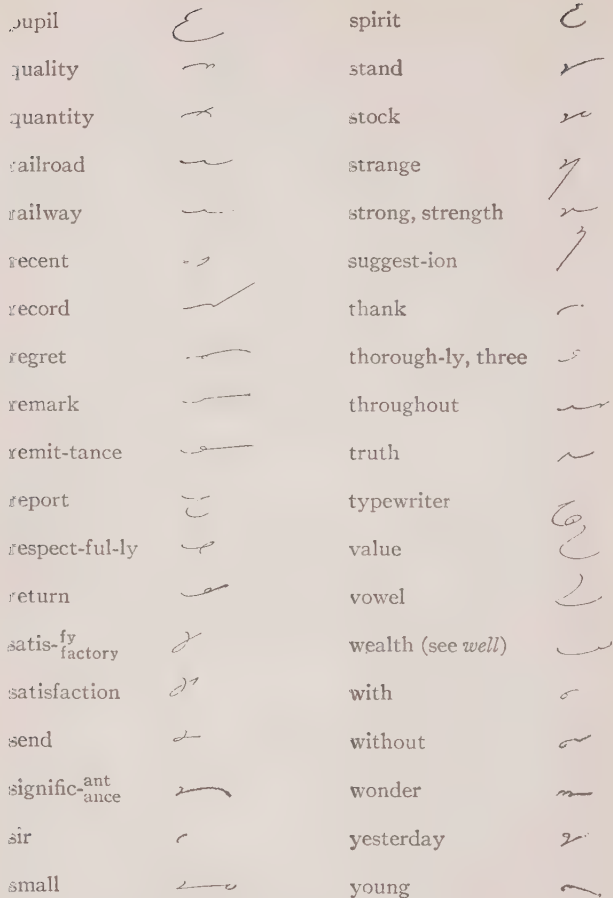 pupil
quality
quantity
railroad
railway
recent
record
regret
remark
remit-tance
report
respect-ful-ly
return
satis-fy factory
satisfaction
send
signific-ant ance
sir
small
spirit
stand
stock
strange
strong, strength
suggest-ion
thank
thorough-ly, three
throughout
truth
typewriter
value
vowel
wealth (see well)
with
without
wonder
yesterday
young